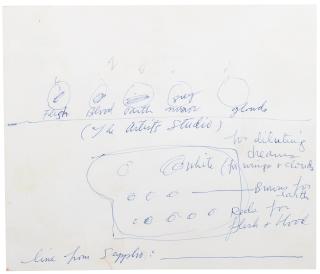 Flesh Blood Earth grey mirror clouds
(The Artists Studio)
for diluting
dreams
White (for wings & clouds
Browns for
earth
Reds for
flesh & blood
line from Sappho: